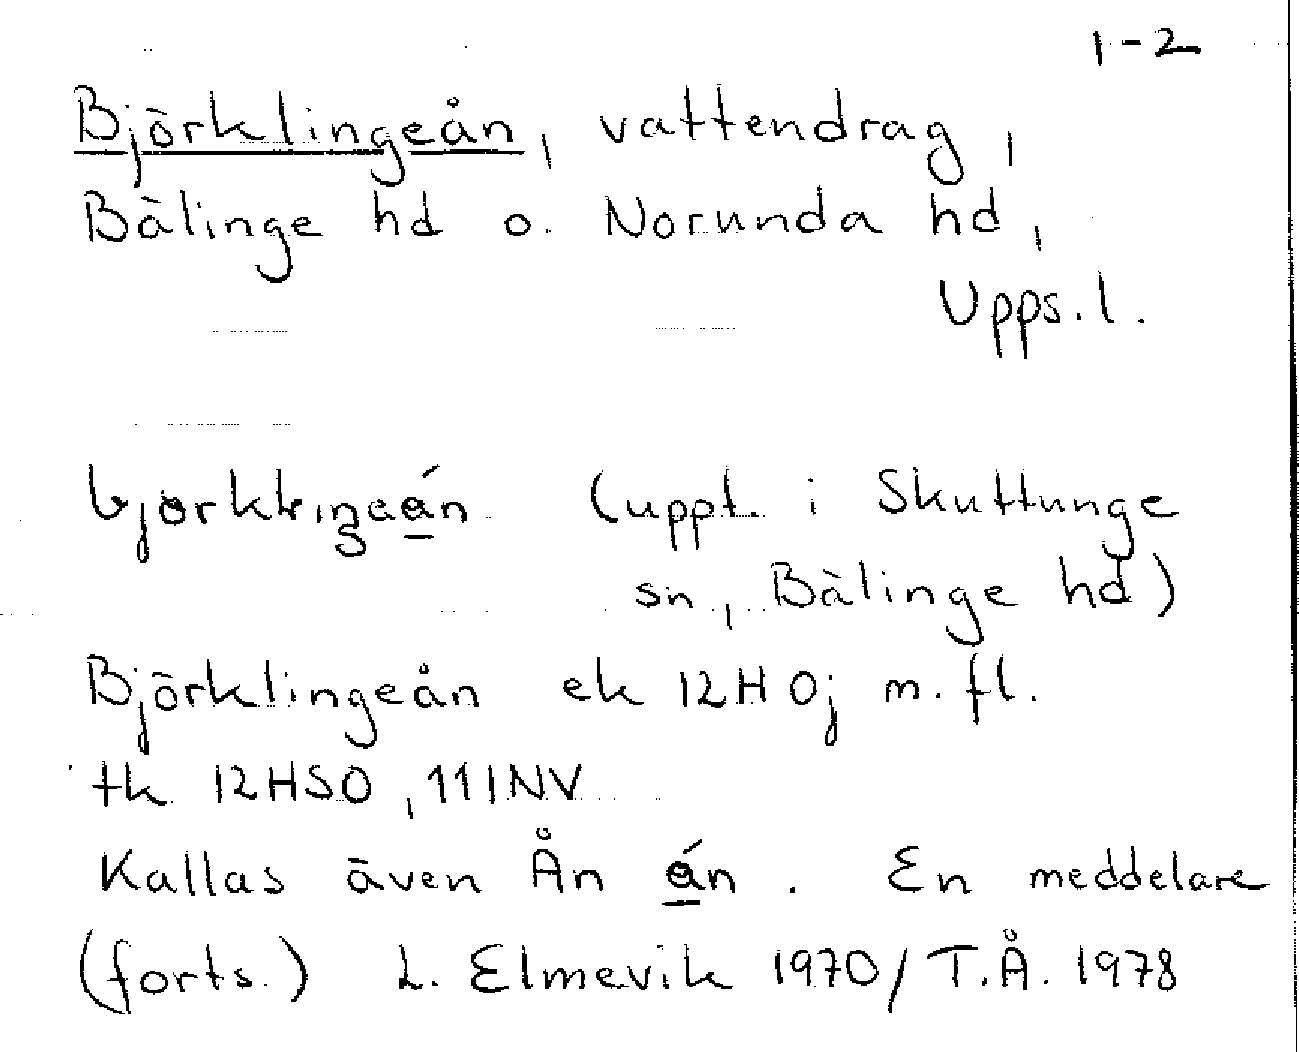 1-2
Björklingeån, vattendrag,
Bälinge hd o. Norunda hd,
Upps.l.
(uppt. i Skuttunge
sn, Bälinge hd)
Björklingeån ek 12H 0j m.fl.
tk 12HSO, 11INV
Kallas även Ån án. En meddelare
(forts.) L. Elmevik 1970/T.Å. 1978